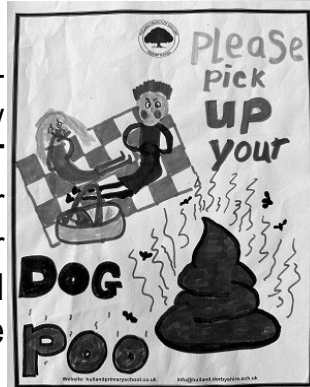 PLeaSe
pick
up
your
DOG
Poo
Website: hullandprimaryschool.co.uk info@hulland.derbyshire.sch.uk